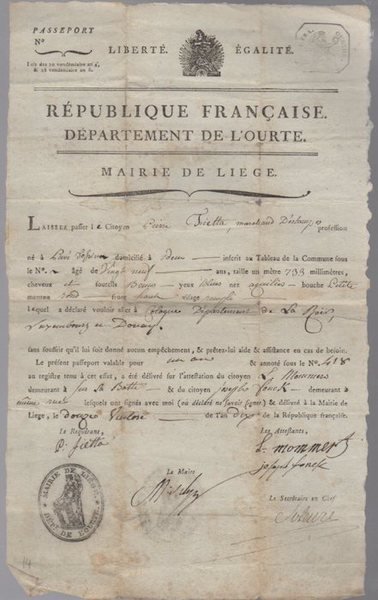 PASSEPORT
N°
LIBERTÉ. ÉGALITÉ.
Lois des 10 vendémiaire an 4,
& 28 vendémiaire an 6.
RÉPUBLIQUE FRANÇAISE.
DÉPARTEMENT DE L'OURTE.
MAIRIE DE LIEGE.
LAISSEZ passer le Citoyen Pierre Fietta, marchand profession
né à domicilié à idem inscrit au Tableau de la Commune sous
le N° âgé de Vingt neuf ans, taille un mètre 733 millimètres,
cheveux et sourcils Bruns yeux nez bouche petite
menton rond front haut visage
lequel a déclaré vouloir aller à Cologne Département de La Roër,
sans souffrir qu'il lui soit donné aucun empêchement, & prêtez-lui aide & assistance en cas de besoin.
Le présent passeport valable pour un an & annoté sous le N° 418
au registre tenu à cet effet, a été délivré sur l'attestation du citoyen L. Mommer
demeurant à & du citoyen joseph demeurant à
même rue lesquels ont signés avec moi (ou déclaré ne savoir signer) & délivré à la Mairie de
Liege, le douze de l'an dix de la République française.
Le Requérant, Les Attestants,
P. fietta L. mommer
joseph
Le Maire
Le Secrétaire en Chef
MAIRIE DE LIEGE.
DÉPt. DE L'OURTE.